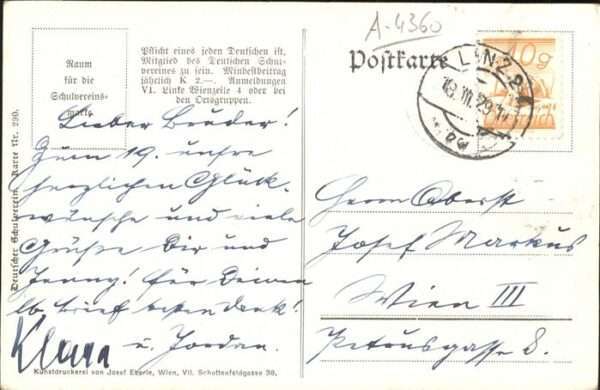 A-4360
Raum
für die
Schulvereins-
marke
Pflicht eines jeden Deutschen ist,
Mitglied des Deutschen Schul-
vereines zu sein. Mindestbeitrag
jährlich K 2.—. Anmeldungen
VI. Linke Wienzeile 4 oder bei
den Ortsgruppen.
Postkarte
LINZ 2
18.III.29
10g
Deutscher Schulverein. Karte Nr. 290.
Lieber Bruder!
Zum 19. unsre
herzlichen Glück-
wünsche und viele
Grüße Dir und
Jenny! Für Deinen
lb. Brief besten Dank!
Klara
u. Jordan.
Herrn Oberst
Josef Markus
Wien III
Petrusgasse 8.
Kunstdruckerei von Josef Eberle, Wien, VII. Schottenfeldgasse 38.